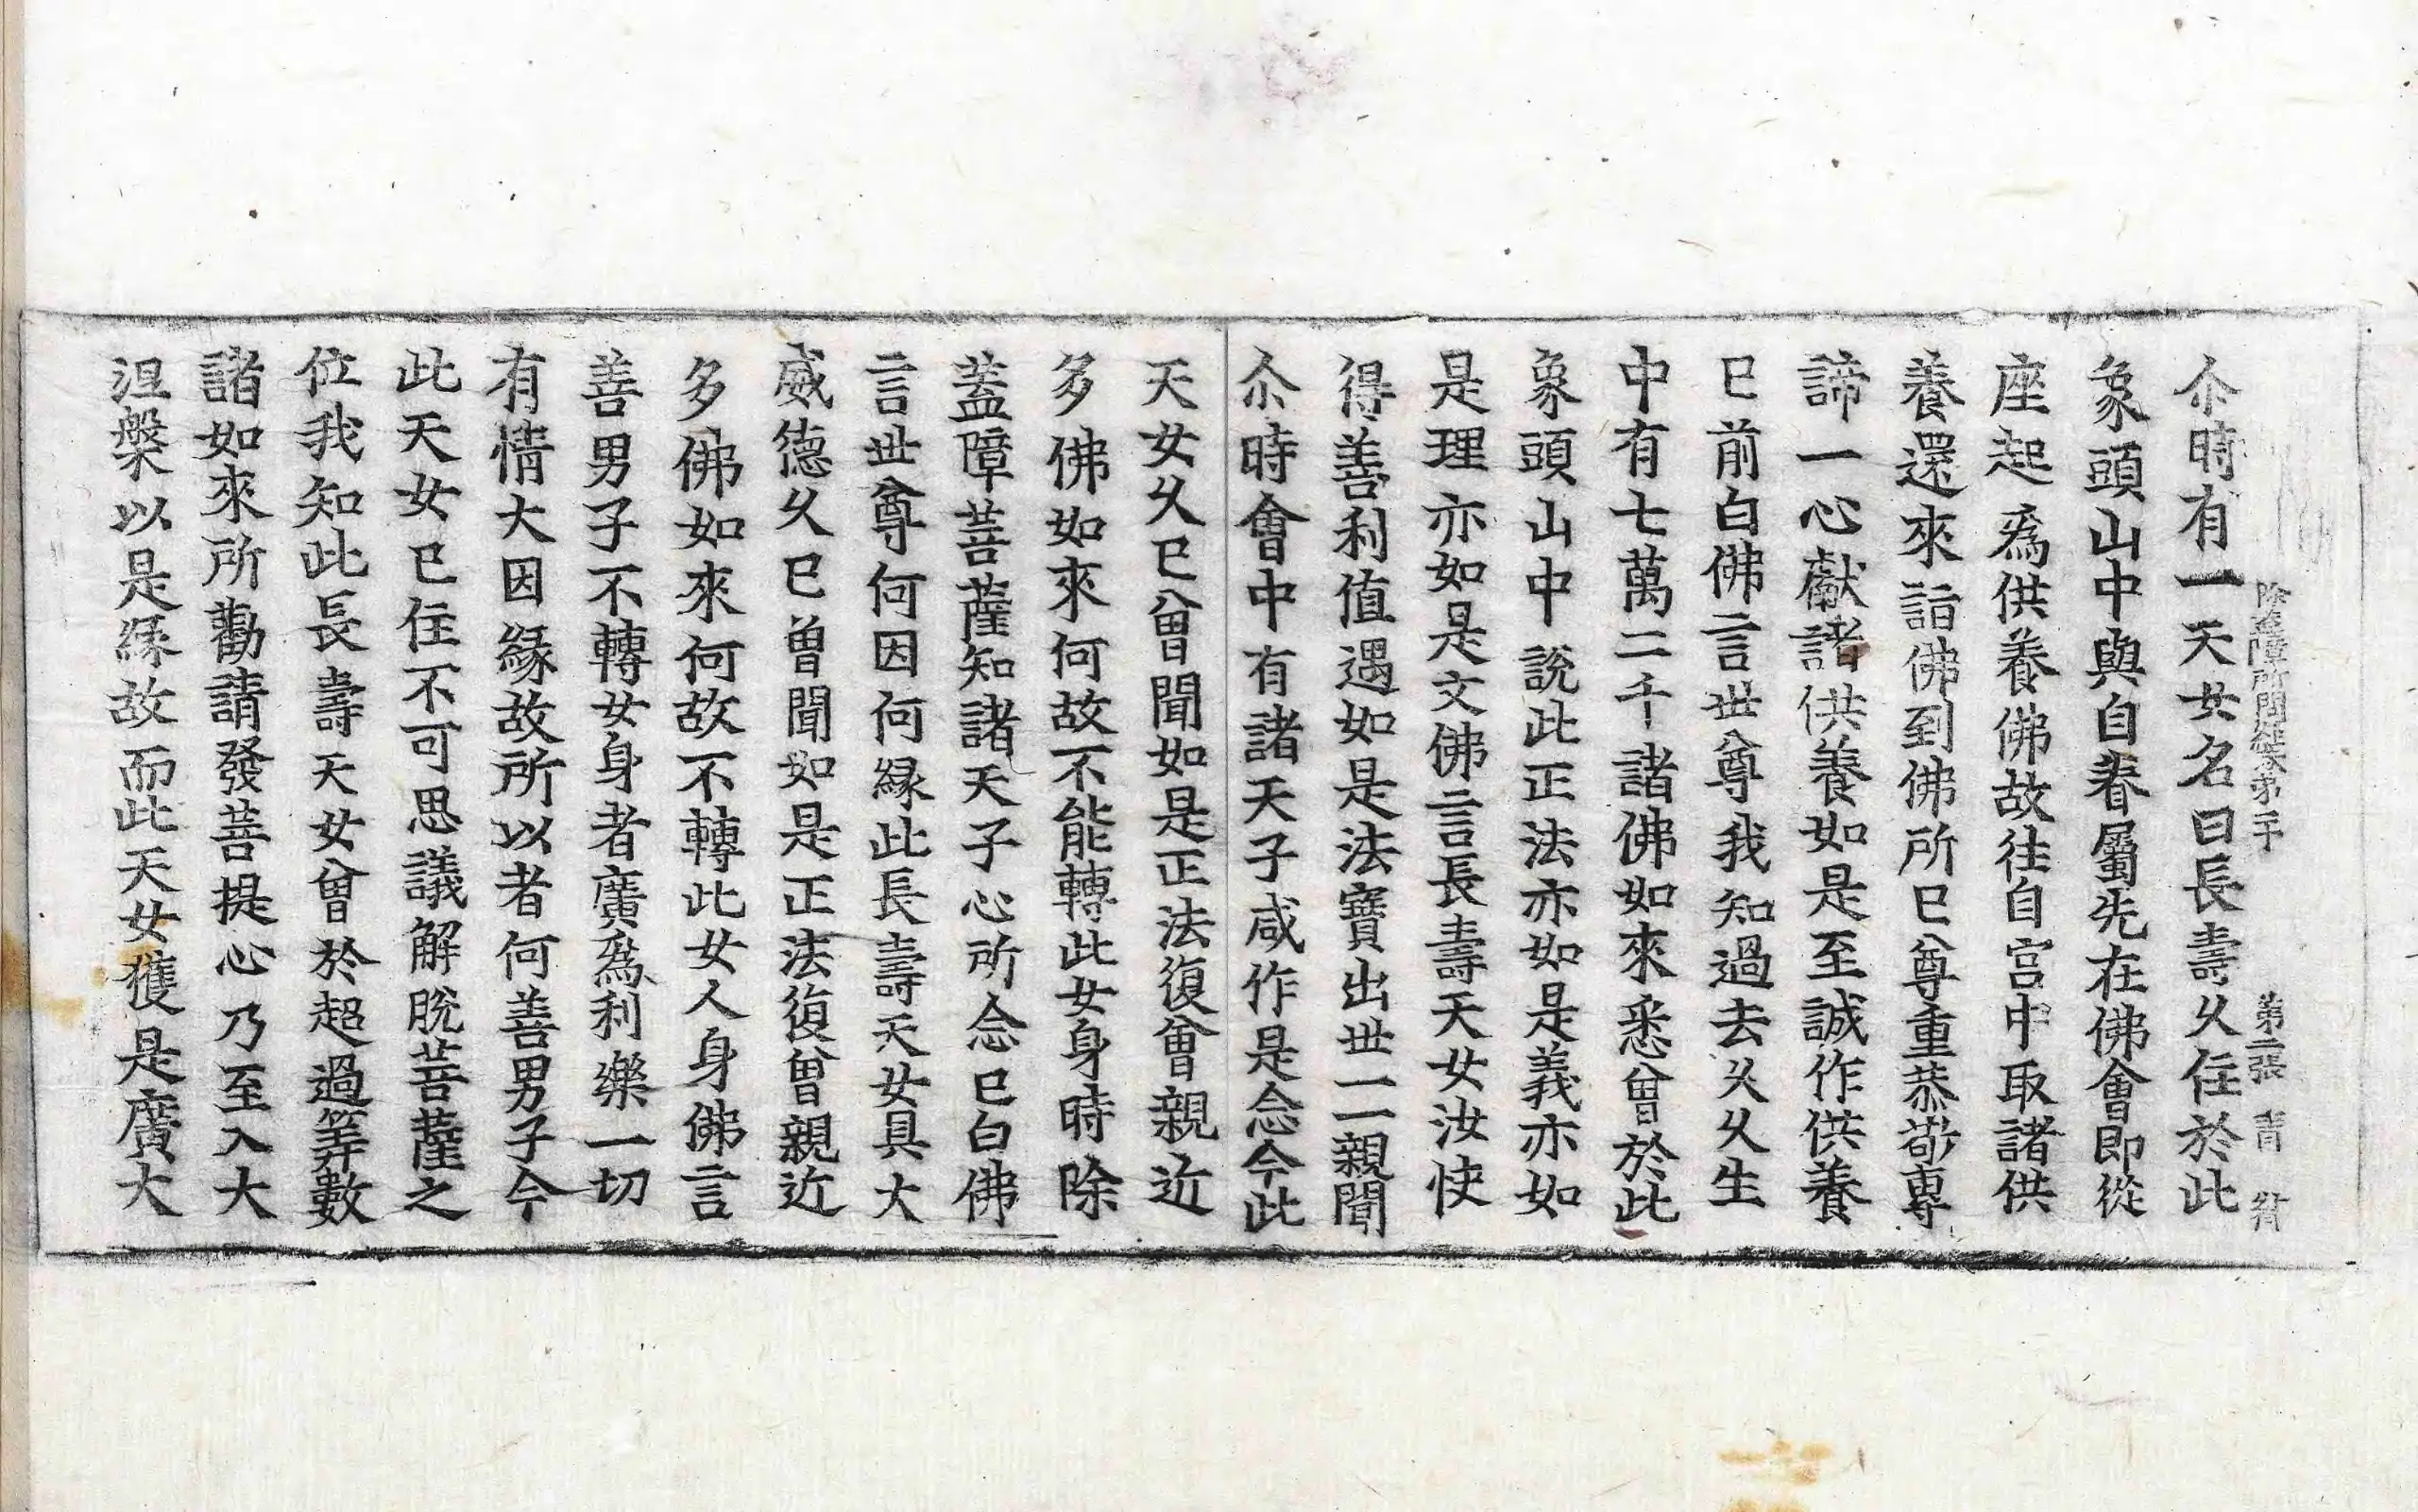 除盖障所問經卷弟二十 第二張 青 背
尒時有一天女名曰長壽久住於此
象頭山中與自眷屬先在佛會即從
座起爲供養佛故往自宫中取諸供
養還來詣佛到佛所已尊重恭敬專
諦一心獻諸供養如是至誠作供養
已前白佛言世尊我知過去久久生
中有七萬二千諸佛如來悉曾於此
象頭山中說此正法亦如是義亦如
是理亦如是文佛言長壽天女汝快
得善利值遇如是法寶出世一一親聞
尒時會中有諸天子咸作是念今此
天女久已曾聞如是正法復曾親近
多佛如來何故不能轉此女身時除
蓋障菩薩知諸天子心所念已白佛
言世尊何因何縁此長壽天女具大
威德久已曾聞如是正法復曾親近
多佛如來何故不轉此女人身佛言
善男子不轉女身者廣爲利樂一切
有情大因縁故所以者何善男子今
此天女已住不可思議解脫菩薩之
位我知此長壽天女曾於超過筭數
諸如來所勸請發菩提心乃至入大
涅槃以是縁故而此天女獲是廣大